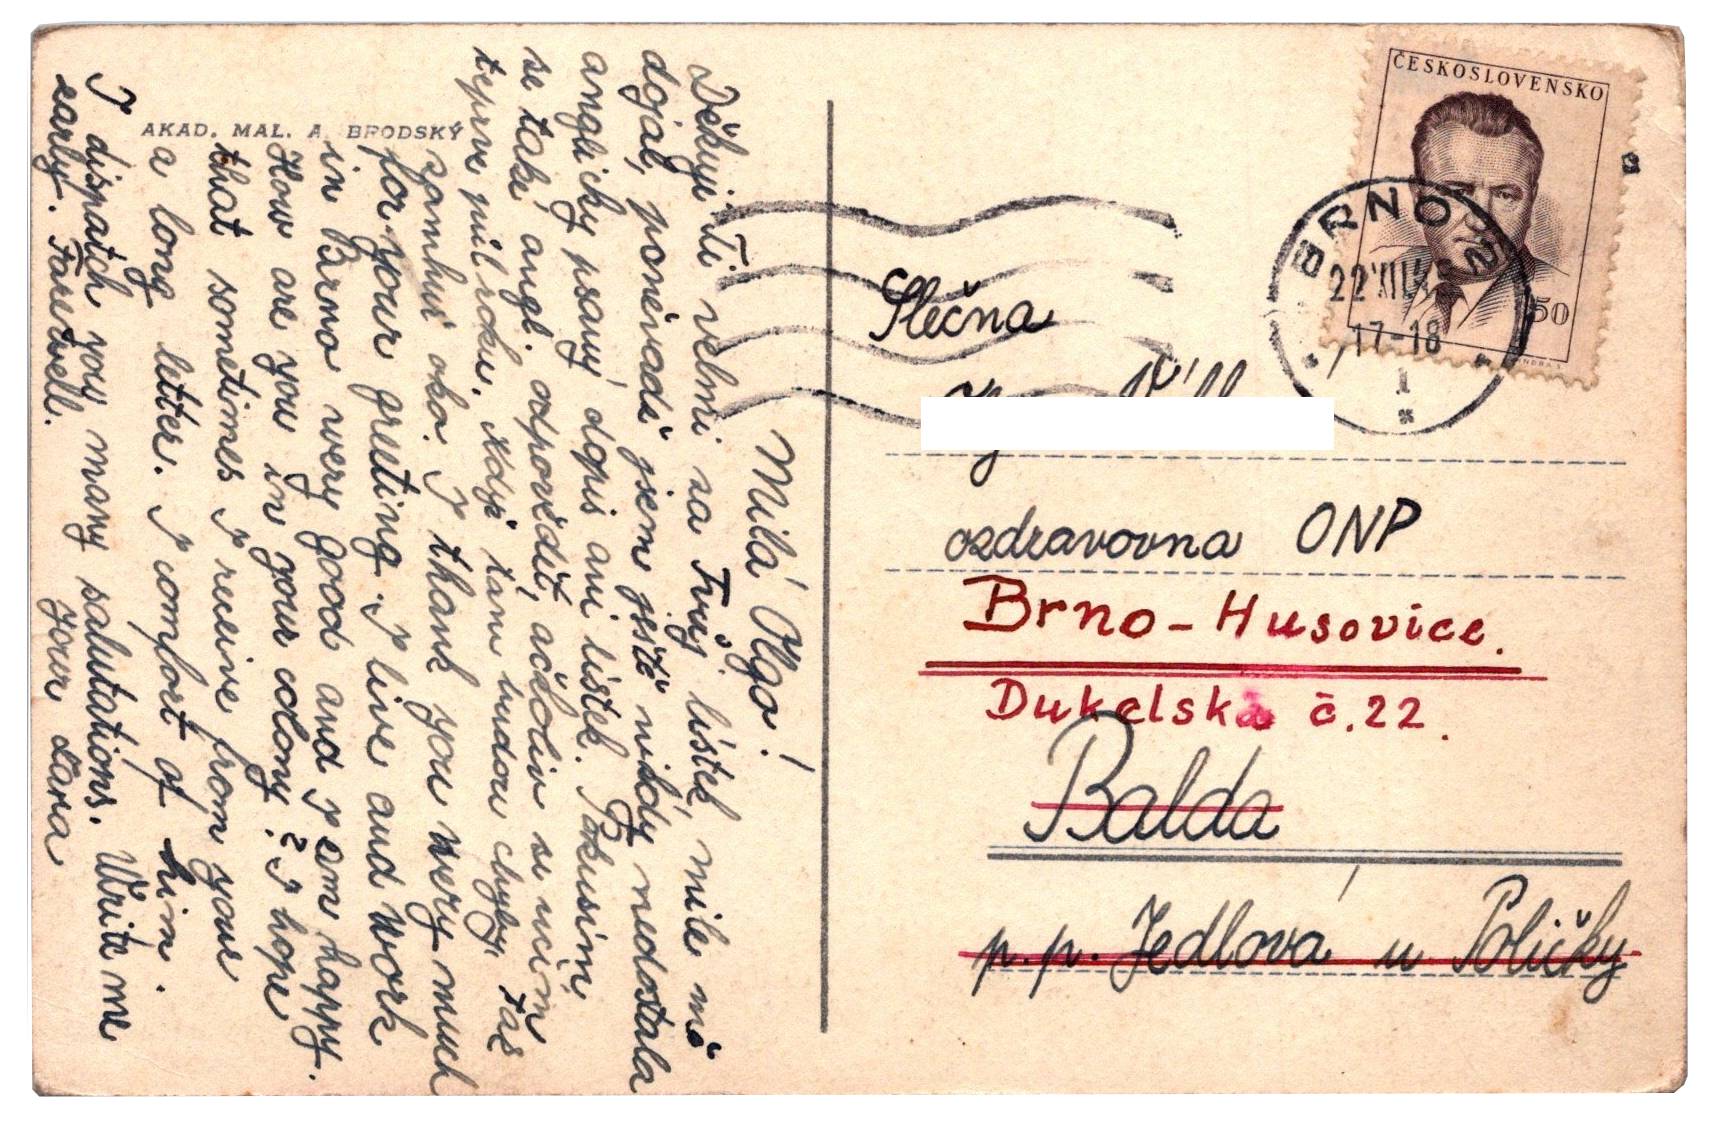 AKAD. MAL. A. BRODSKÝ
Milá Olgo!
Děkuji Ti velmi za Tvůj lístek, mile mě
dojal, poněvadž jsem ještě nikdy nedostala
anglicky psaný dopis ani lístek. Pokusím
se také angl. odpovědít, ačkoliv se učím
teprve půl roku. Když tam budou chyby, tak
zamhuř oko. I thank you very much
for your greeting. I live and work
in Brno very good and I am happy.
How are you in your colony? I hope
that sometimes I receive from your
a long letter. I comfort of him.
I dispatch you many salutations. Write me
early. Farewell. Your Lana
ČESKOSLOVENSKO
50
BRNO 2
22 XII
17-18
1
Slečna
ozdravovna ONP
Brno - Husovice.
Dukelská č. 22.
Balda
p. p. Jedlová u Poličky